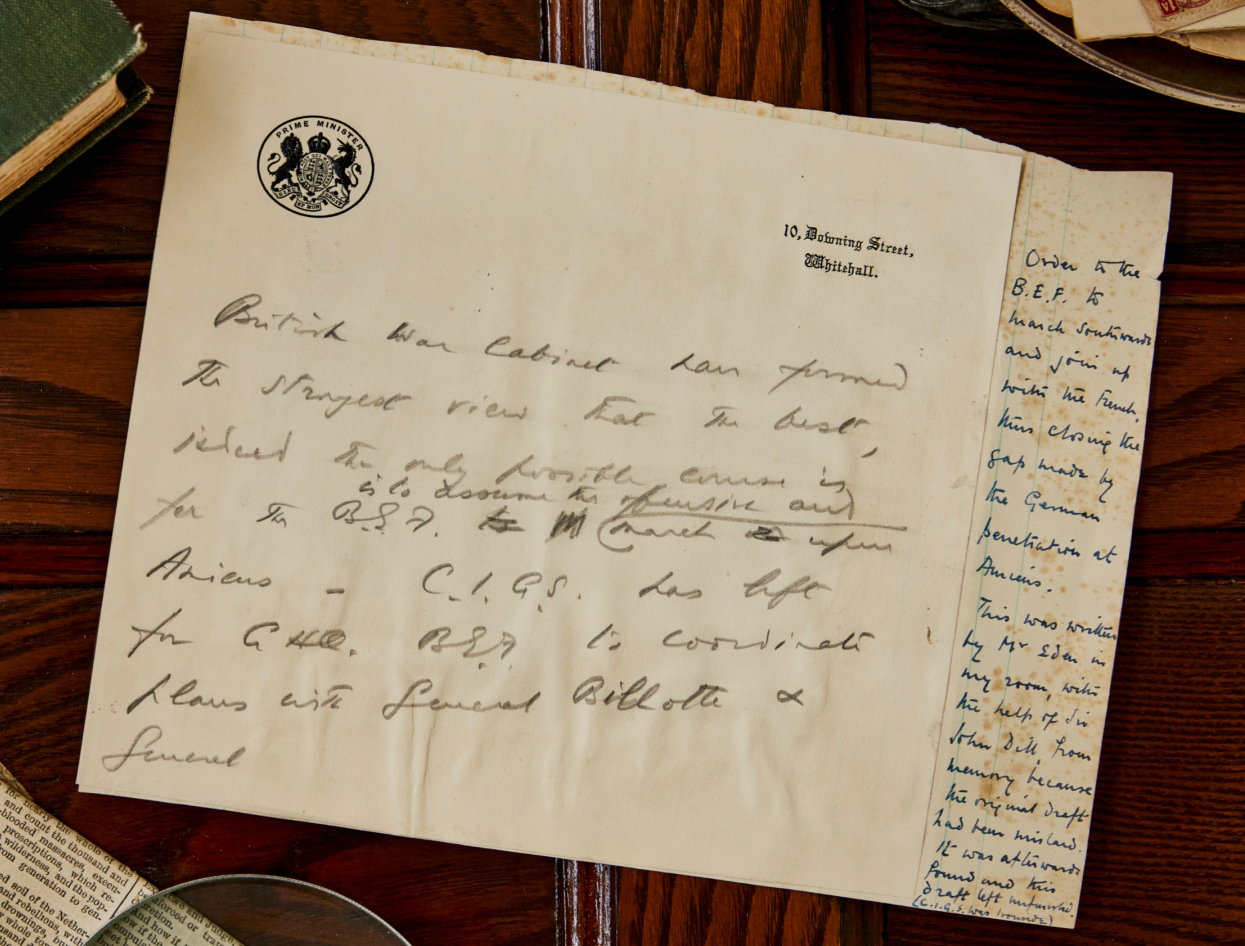 PRIME MINISTER
10, Downing Street,
Whitehall.
British War Cabinet have formed
the strongest view that the best,
indeed the only possible course is
is to assume the offensive and
for the B.E.F. to march upon
Amiens – C.I.G.S. has left
for GHQ. B.E.F. to coordinate
plans with General Billotte &
General
Order to the
B.E.F. to
march Southwards
and join up
with the French,
thus closing the
gap made by
the German
penetration at
Amiens.
This was written
by Mr Eden in
my room, with
the help of Sir
John Dill, from
memory because
the original draft
had been mislaid.
It was afterwards
found and this
draft left unfinished.
(C.I.G.S. was Ironside)
for nearly the whole of the
and count the thousand and
-blooded massacres, execu-
proscriptions, which
wilderness, and the pop-
from generation to gen-
soil of the Nether-
and rebellions, with
drownings,
whole